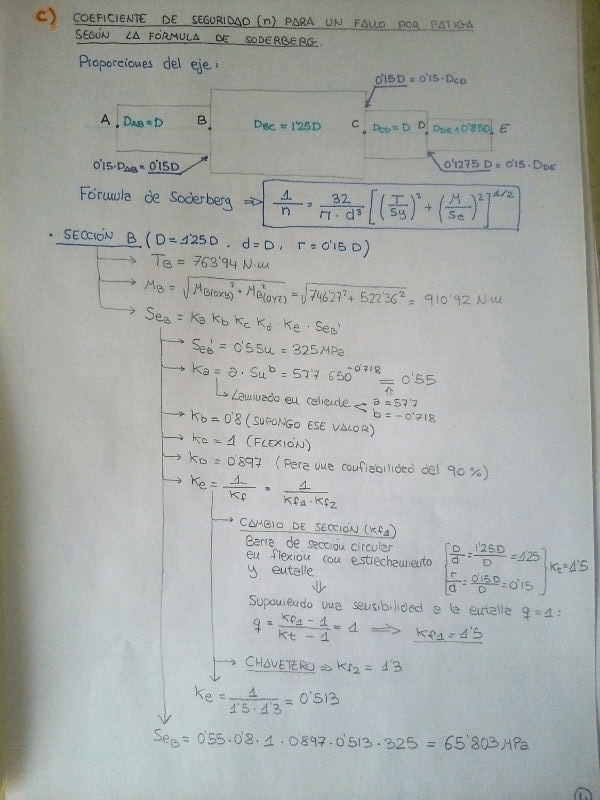 c) COEFICIENTE DE SEGURIDAD (n) PARA UN FALLO POR FATIGA
SEGÚN LA FÓRMULA DE SODERBERG.
Proporciones del eje:
0'15D = 0'15·DCD
A DAB = D B DBC = 1'25D C DCD = D D DDE = 0'85D E
0'15·DAB = 0'15D
0'1275 D = 0'15·DDE
Fórmula de Soderberg ⇒ 1/n = 32/(π·d³) [(T/Sy)² + (M/Se)²]^1/2
• SECCIÓN B (D = 1'25D, d = D, r = 0'15D)
→ TB = 763'94 N·m
→ MB = √(MB(0XY)² + MB(0YZ)²) = √(746'27² + 522'36²) = 910'92 N·m
→ SeB = Ka Kb Kc Kd · Ke · SeB'
→ SeB' = 0'5Su = 325 MPa
→ Ka = a · Su^b = 57'7·650^-0'718 = 0'55
↳ Laminado en caliente a = 57'7
b = -0'718
→ Kb = 0'8 (SUPONGO ESE VALOR)
→ Kc = 1 (FLEXIÓN)
→ KD = 0'897 (Para una confiabilidad del 90 %)
→ Ke = 1/Kf = 1/(Kf1·Kf2)
→ CAMBIO DE SECCIÓN (Kf1)
Barra de sección circular
en flexión con estrechamiento
y entalle
D/d = 1'25D/D = 1'25
r/d = 0'15D/D = 0'15
Kt = 1'5
⇓
Suponiendo una sensibilidad a la entalla q = 1:
q = (Kf1 - 1)/(Kt - 1) = 1 ⇒ Kf1 = 1'5
→ CHAVETERO ⇒ Kf2 = 1'3
Ke = 1/(1'5·1'3) = 0'513
SeB = 0'55·0'8·1·0'897·0'513·325 = 65'803 MPa